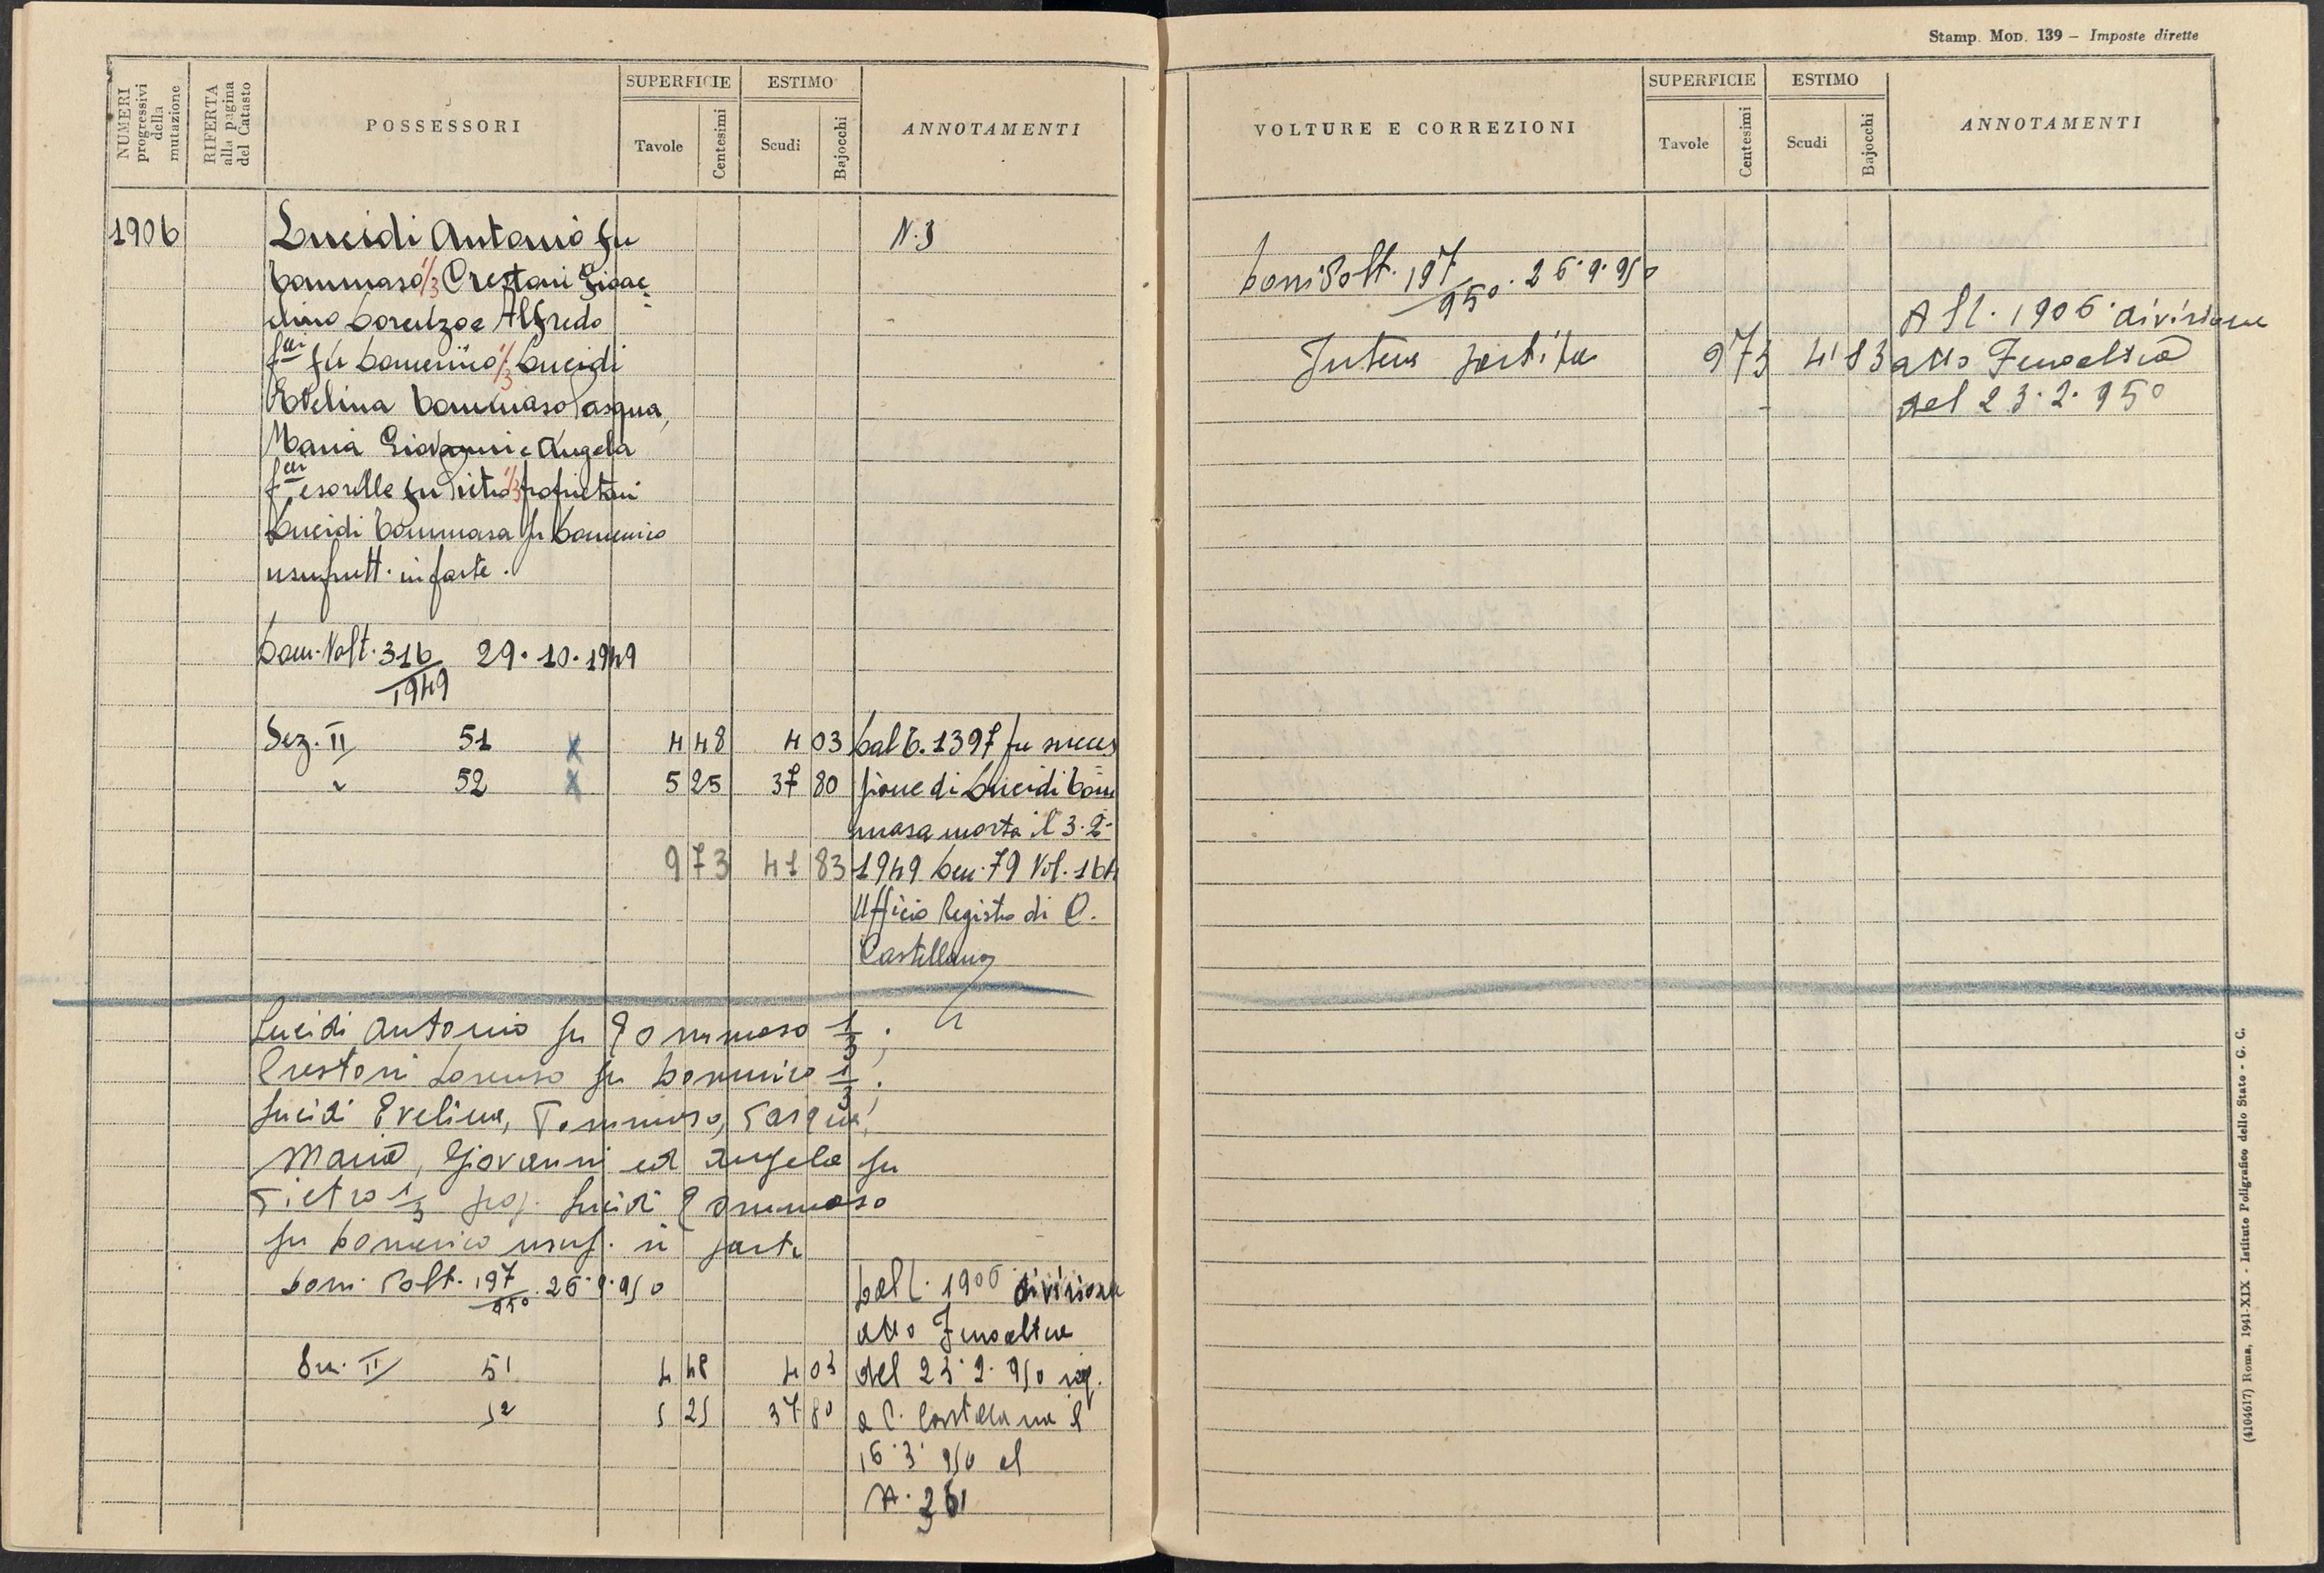 Stamp. Mod. 139 – Imposte dirette
NUMERI progressivi della mutazione
RIFERTA alla pagina del Catasto
POSSESSORI
SUPERFICIE
Tavole
Centesimi
ESTIMO
Scudi
Bajocchi
ANNOTAMENTI
1906
Lucidi Antonio fu
N. 3
Tommaso 1/3 Crestoni
Lorenzo e Alfredo
f.lli fu Domenico 1/3 Lucidi
Evelina Tommaso Pasqua,
Maria Giovanni e Angela
f.lli e sorelle fu Pietro 1/3 proprietari
Lucidi Tommasa fu Domenico
usufrutt. in parte.
Dom. Volt. 316/1949 29.10.1949
Sez. II 51 X 4 48 4 03 Dal T. 1397 per succes
" 52 X 5 25 37 80 sione di Lucidi Tom
masa morta il 3.2.
9 73 41 83 1949 Den. 79 Vol. 164
Ufficio Registro di C.
Castellana
Lucidi Antonio fu Tommaso 1/3;
Crestoni Lorenzo fu Domenico 1/3;
Lucidi Evelina, Tommaso, Pasqua,
Maria, Giovanni ed Angela fu
Pietro 1/3 prop. Lucidi Tommasa
fu Domenico usuf. in parte
Dom. Volt. 197/950. 26.9.950
Dal T. 1906 divisione
atto Fenoaltea
Sez. II 51 4 48 4 03 del 23.2.950 reg.
52 5 25 37 80 a C. Castellana il
16.3.950 al
N. 261
VOLTURE E CORREZIONI
SUPERFICIE
Tavole
Centesimi
ESTIMO
Scudi
Bajocchi
ANNOTAMENTI
Dom. Volt. 197/950. 26.9.950
Al T. 1906 divisione
Intera partita 9 73 41 83 atto Fenoaltea
del 23.2.950
(4104617) Roma, 1941-XIX - Istituto Poligrafico dello Stato - G. C.